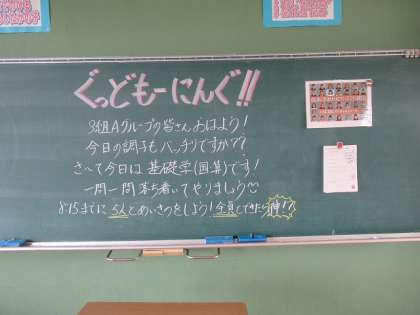 ぐっどもーにんぐ!!
3組Aグループの皆さんおはよう!
今日の調子もバッチリですか??
さ〜て今日は基礎学(国算)です!
一問一問落ち着いてやりましょう
8:15までに5人とあいさつをしよう!全員とできたら神!?